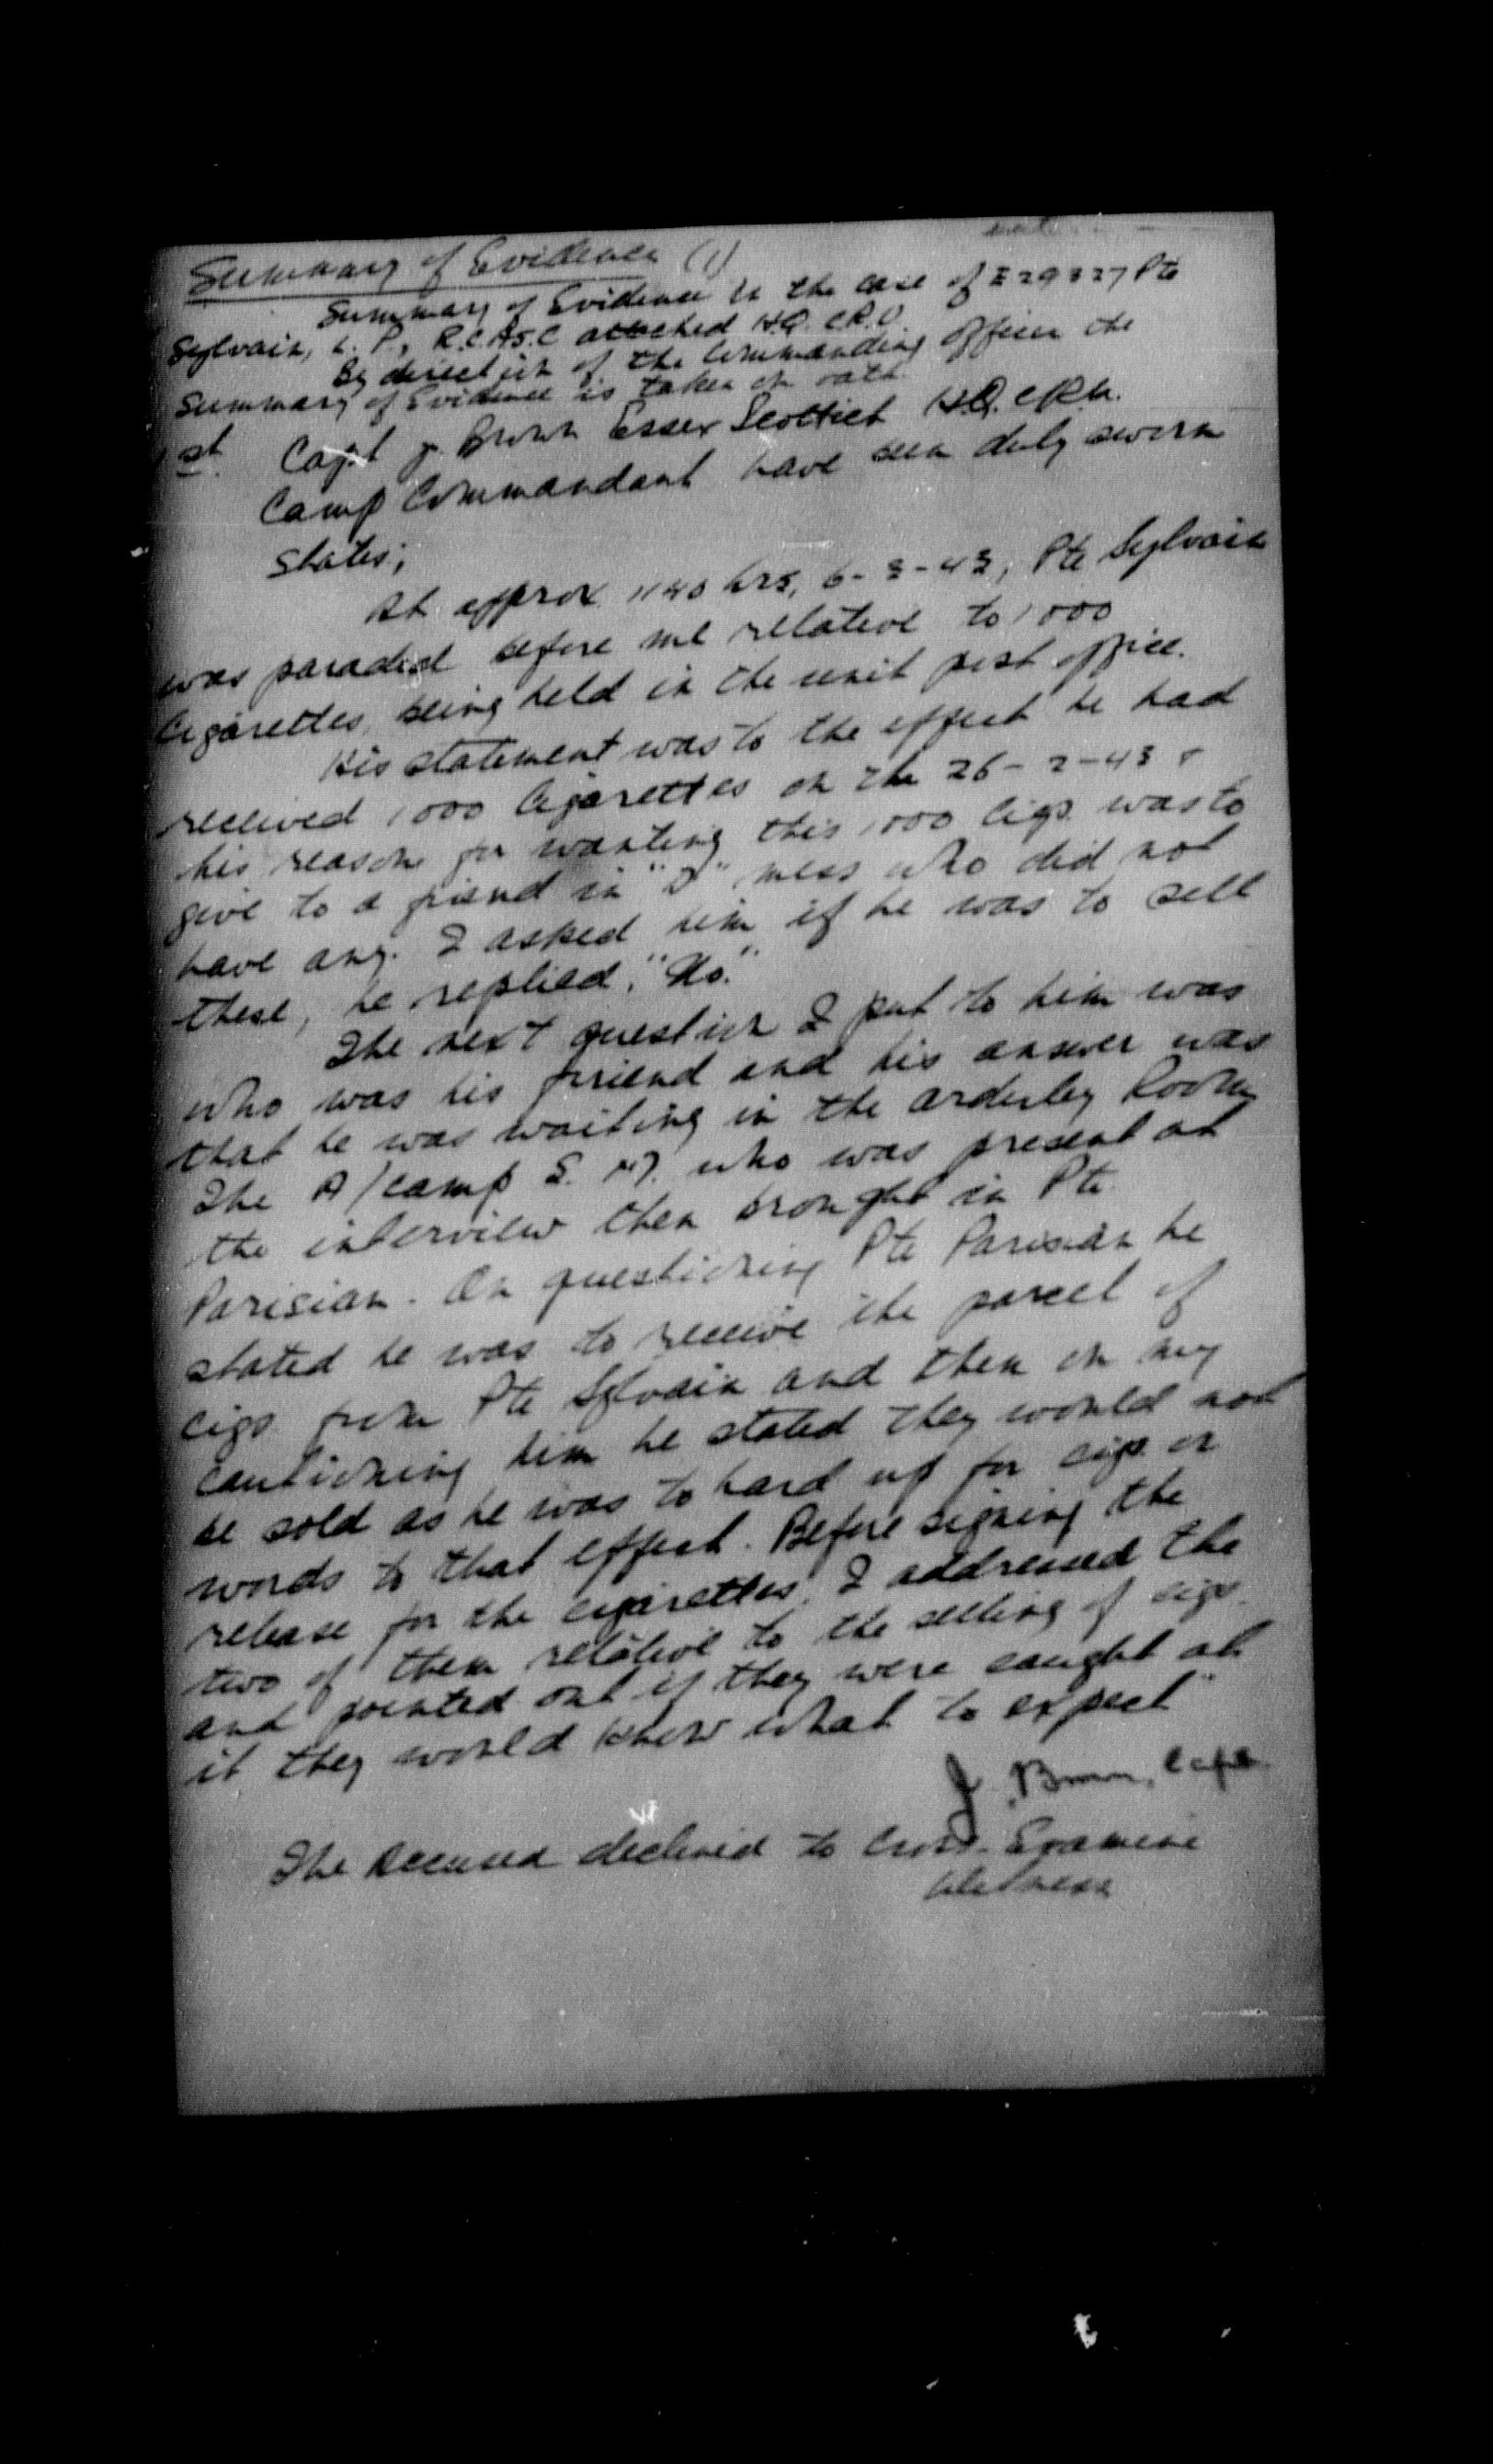 Summary of Evidence (1)
Summary of Evidence in the case of E29827 Pte
Sylvain, L. P., R.C.A.S.C attached H.Q. C.R.U.
By direction of the Commanding Officer the
Summary of Evidence is taken on oath
1st. Capt J. Brown Essex Scottish H.Q. C.R.U.
Camp Commandant have been duly sworn
states;
At approx 1140 hrs, 6-3-43, Pte Sylvain
was paraded before me relative to 1000
Cigarettes, being held in the unit post office.
His statement was to the effect he had
received 1000 Cigarettes on the 26-2-43 &
his reason for wanting this 1000 Cigs was to
give to a friend in mess who did not
have any. I asked him if he was to sell
these, he replied, "No."
The next question I put to him was
who was his friend and his answer was
that he was waiting in the orderley Room
The A/Camp S. M. who was present at
the interview then brought in Pte
Parisian. On questioning Pte Parisian he
stated he was to receive the parcel of
cigs from Pte Sylvain and then on my
cautioning him he stated they would not
be sold as he was to hard up for cigs or
words to that effect. Before signing the
release for the cigarettes, I addressed the
two of them relative to the selling of cigs.
and pointed out if they were caught at
it they would know what to expect"
J. Brown, Capt
The Accused declined to Cross-Examine
Witness